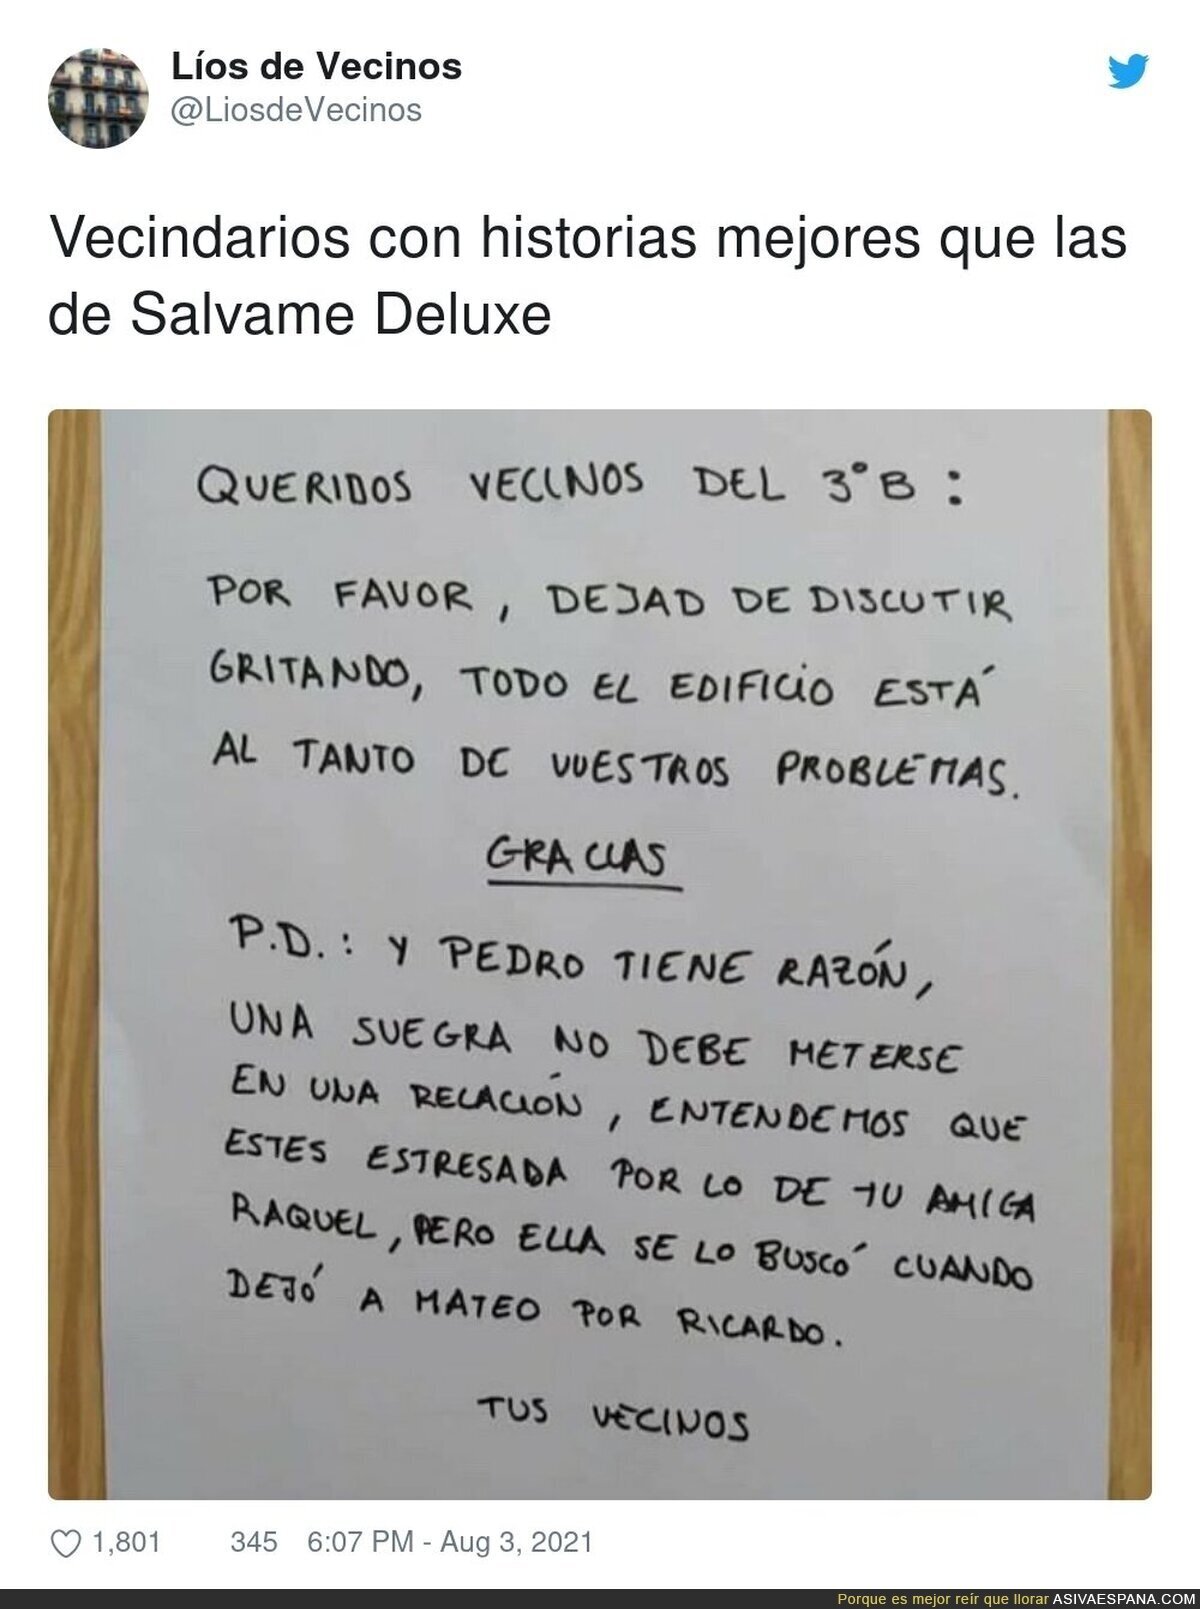 Líos de Vecinos
@LiosdeVecinos
Vecindarios con historias mejores que las
de Salvame Deluxe
QUERIDOS VECINOS DEL 3º B :
POR FAVOR , DEJAD DE DISCUTIR
GRITANDO, TODO EL EDIFICIO ESTÁ
AL TANTO DE VUESTROS PROBLEMAS.
GRACIAS
P.D. : Y PEDRO TIENE RAZÓN,
UNA SUEGRA NO DEBE METERSE
EN UNA RELACIÓN , ENTENDEMOS QUE
ESTES ESTRESADA POR LO DE TU AMIGA
RAQUEL, PERO ELLA SE LO BUSCÓ CUANDO
DEJÓ A MATEO POR RICARDO.
TUS VECINOS
1,801 345 6:07 PM - Aug 3, 2021
Porque es mejor reír que llorar ASIVAESPANA.COM